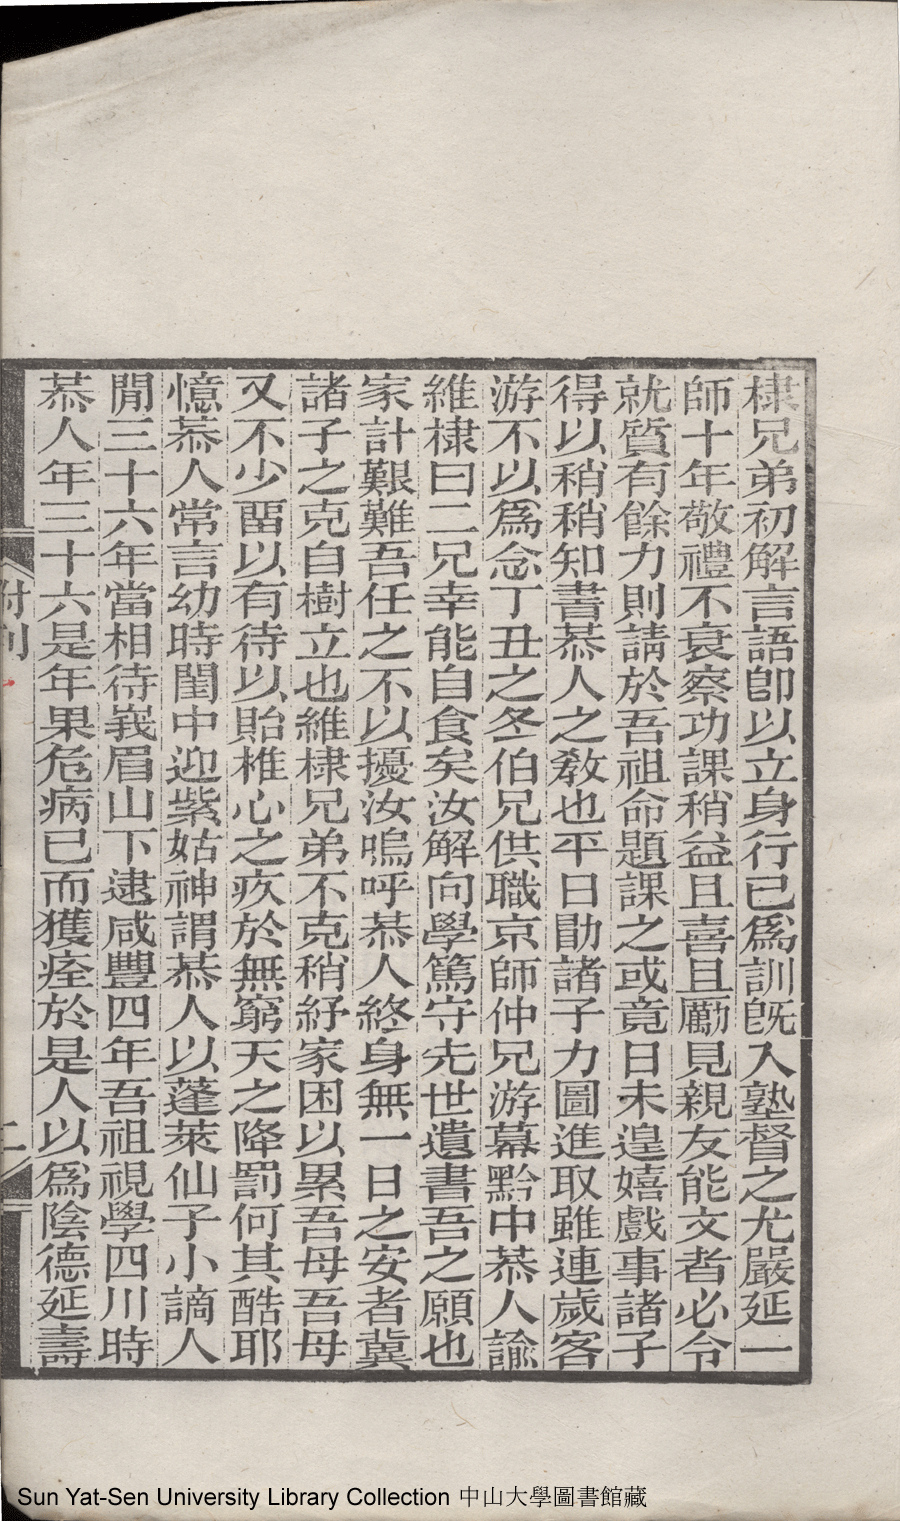 棣兄弟初解言語卽以立身行已爲訓旣入塾督之尤嚴延一
師十年敬禮不衰察功課稍益且喜且勵見親友能文者必令
就質有餘力則請於吾祖命題課之或竟日未遑嬉戲事諸子
得以稍稍知書恭人之敎也平日勖諸子力圖進取雖連歲客
游不以爲念丁丑之冬伯兄供職京師仲兄游幕黔中恭人諭
維棣曰二兄幸能自食矣汝解向學篤守先世遺書吾之願也
家計艱難吾任之不以擾汝嗚呼恭人終身無一日之安者冀
諸子之克自樹立也維棣兄弟不克稍紓家困以累吾母吾母
又不少畱以有待以貽椎心之疚於無窮天之降罰何其酷耶
憶恭人常言幼時閨中迎紫姑神謂恭人以蓬萊仙子小謫人
閒三十六年當相待峩眉山下逮咸豐四年吾祖視學四川時
恭人年三十六是年果危病已而獲痊於是人以爲陰德延壽
附刊
二
Sun Yat-Sen University Library Collection 中山大學圖書館藏